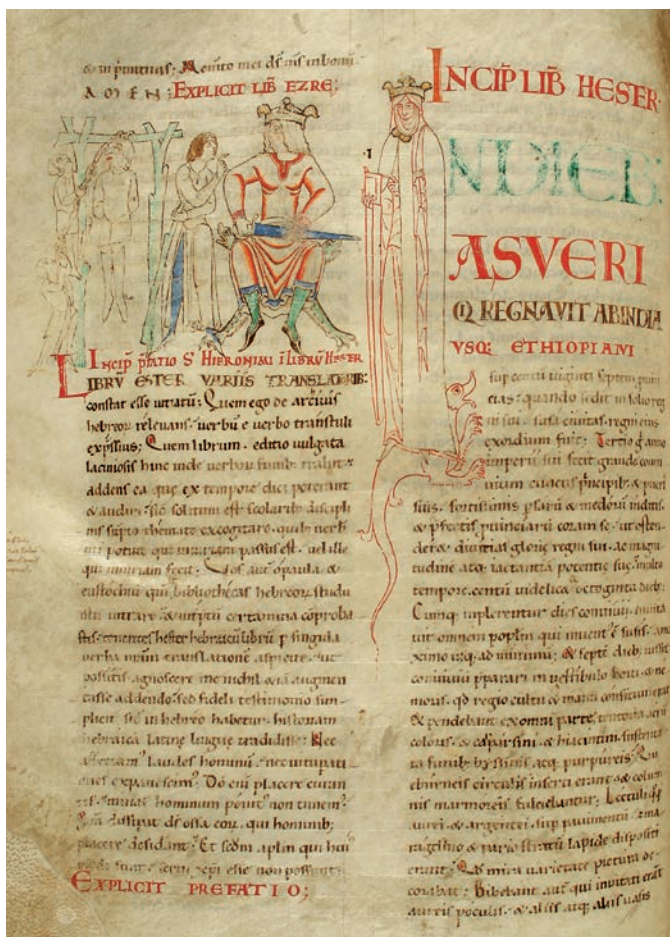 AMEN; EXPLICIT LIB EZRE;
INCIP P̄FATIO S̄ HIERONIMI I LIBRŪ HESTER
LIBRV̄ ESTER VARIIS TRANSLATORIB:
constat esse uitiatū; Quem ego de archiuis
hebreoꝝ releuans. uerbū e uerbo transtuli
exp̄ssius; Quem librum. editio uulgata
laciniosis hinc inde uerboꝝ funib; trahit.
addens ea que ex tempore dici poterant
& audiri. sic̄ solitum est scolarib; discipli
nis sūpto themate excogitare. quib; uerb
uti potuit qui iniuriam passus est. uel ille
qui iniuriam fecit;
eustochiū qui bibliothecas hebreoꝝ studu
istis
hester hebraicū librū p singula
uerba nr̄am translationē aspicite. ut
possitis agnoscere me nichil &iā augmen
tasse addendo. sed fideli testimonio sim
plicit̄ sic̄ in hebreo habetur. historiam
hebraicā latine lingue tradidisse; Nec
laudes hominū. nec uitupati
ones expauescim;
minas hominum penit; non timem;
dissipat ds̄ ossa eoꝝ. qui hominib;
placere desidant. Et scd̄m aplm qui hui
modi sunt. serui xp̄i esse non possunt;
EXPLICIT PREFATIO;
INCIP̄ LIB̄ HESTER
.I
NDIEB:
ASVERI
Q REGNAVIT AB INDIA
VSQ; ETHIOPIAM
sup centū uiginti septem puin
cias. quando sedit in solio reg
ni sui. susa ciuitas regni eius
exordium fuit; Tertio g̊ anno
imperii sui fecit grande conui
uium cunctis p̄ncipib; & pueri
suis. fortissimis psarū & medoꝝ inclitis.
& p̄fectis puinciarū coram se. ut osten
der& diuitias glorie regni sui. ac magni
tudine atq; iactantiā potentie sue. multo
tempore. centū uidelic& octoginta dieb;
Cumq; implerentur dies conuiuii. inuita
uit omnem poplm qui inuent; ē susis. a ma
ximo usq; ad minimū; & septē dieb; iussit
conuiuiū pparari in uestibulo horti & ne
moris. qd̄ regio cultu & manu consitum erat
& pendebant ex omni parte tentoria aerii
coloris. & carpasini. & hiacintini. sustenta
ta funib; byssinis atq; purpureis. Qui
eburneis circulis inserti erant. & colum
nis marmoreis fulciebantur; Lectuli qq;
aurei & argentei. sup pauimentū zma
ragdino & pario stratū lapide dispositi
erant; Qd̄ mira uarietate pictura de
corabat; Bibebant aut̄ qui inuitati erāt
aureis poculis. & aliis atq; aliis uasis